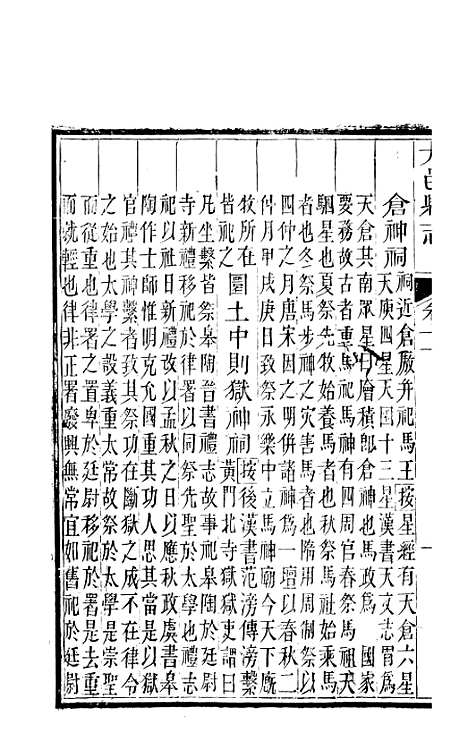 大邑縣志 卷十一 一
倉神祠祠近倉厫并祀馬王按星經有天倉六星
天庾四星天囷十三星漢書天文志胃爲
天倉其南眾星曰廥積郎倉神也馬政爲 國家
要務故古者重馬祀馬神有四周官春祭馬祖天
駟星也夏祭先牧始養馬者也秋祭馬社始乘馬
者也冬祭馬步神之灾害馬者也隋用周制祭以
四仲之月唐宋因之明併諸神爲一壇以春秋二
仲月甲戌庚日致祭永樂中立馬神廟今天下廐
牧所在
皆祀之圜土中則獄神祠按後漢書范滂傳滂繫
黃門北寺獄獄吏謂曰
凡坐繫皆祭皋陶晉書禮志故事祀皋陶於廷尉
寺新禮移祀於律署以同祭先聖於太學也又故
祀以社日新禮改以孟秋之日以應秋政虞書皋
陶作士師惟明克允國重其功人思其當是以獄
官禮其神繫者致其祭功在斷獄之成不在律令
之始也太學之設義重太常故祭於太學是崇聖
而從重也律署之置卑於廷尉移祀於署是去重
而就輕也律非正署廢興無常宜如舊祀於廷尉